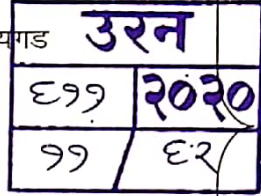 यगड उरन
६११ २०२०
११ / ६२